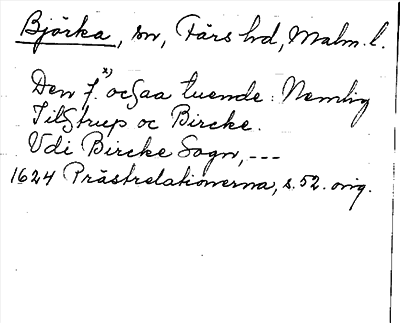 Björka, sn, Färs hd, Malm. l.
Den f. x) ocsaa tuende: Nemlig
Tilstrup oc Bircke.
Vdi Bircke Sogn, ---
1624 Prästrelationerna, s. 52. orig.